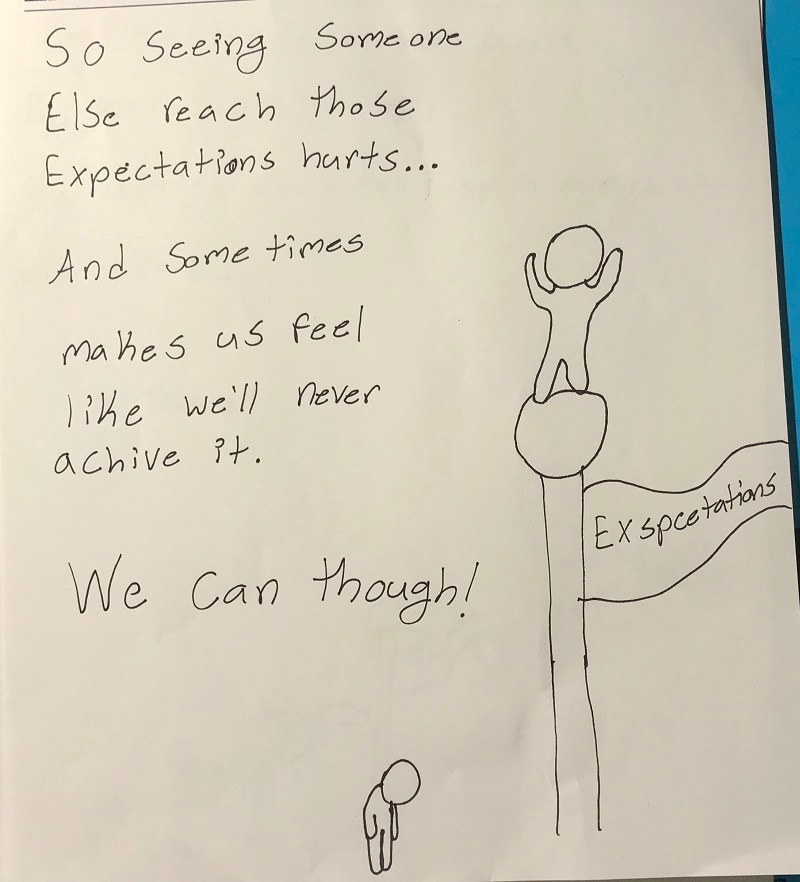 So Seeing Someone
Else reach those
Expectations hurts...
And Sometimes
makes us feel
like we'll never
achive it.
We Can though!
Exspcetations